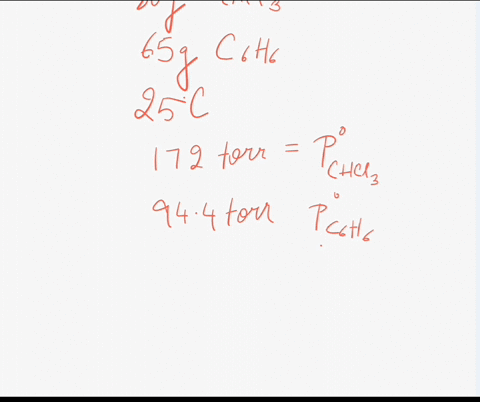 65g C6H6
25°C
172 torr = P°CHCl3
94.4 torr P°C6H6